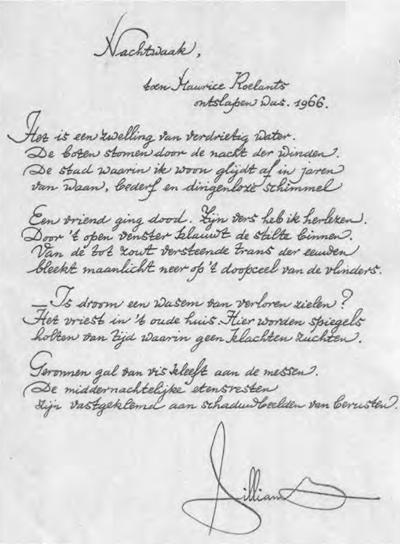 Nachtwaak,
toen Maurice Roelants
ontslapen was. 1966.
Het is een zwelling van verdrietig water.
De boten stomen door de nacht der winden.
De stad waarin ik woon glijdt af in jaren
van waan, bederf en dingenloze schimmel
Een vriend ging dood. Zijn vers heb ik herlezen.
Door 't open venster klauwt de stilte binnen.
Van de tot zout versteende trans der eeuwen
bleekt maanlicht neer op 't doopceel van de vlinders.
— Is droom een wasem van verloren zielen?
Het vriest in 't oude huis. Hier worden spiegels
holten van tijd waarin geen klachten zuchten.
Geronnen gal van vis kleeft aan de messen.
De middernachtelijke etensresten
zijn vastgeklemd aan schaduwbeelden van berusten.
Jillian